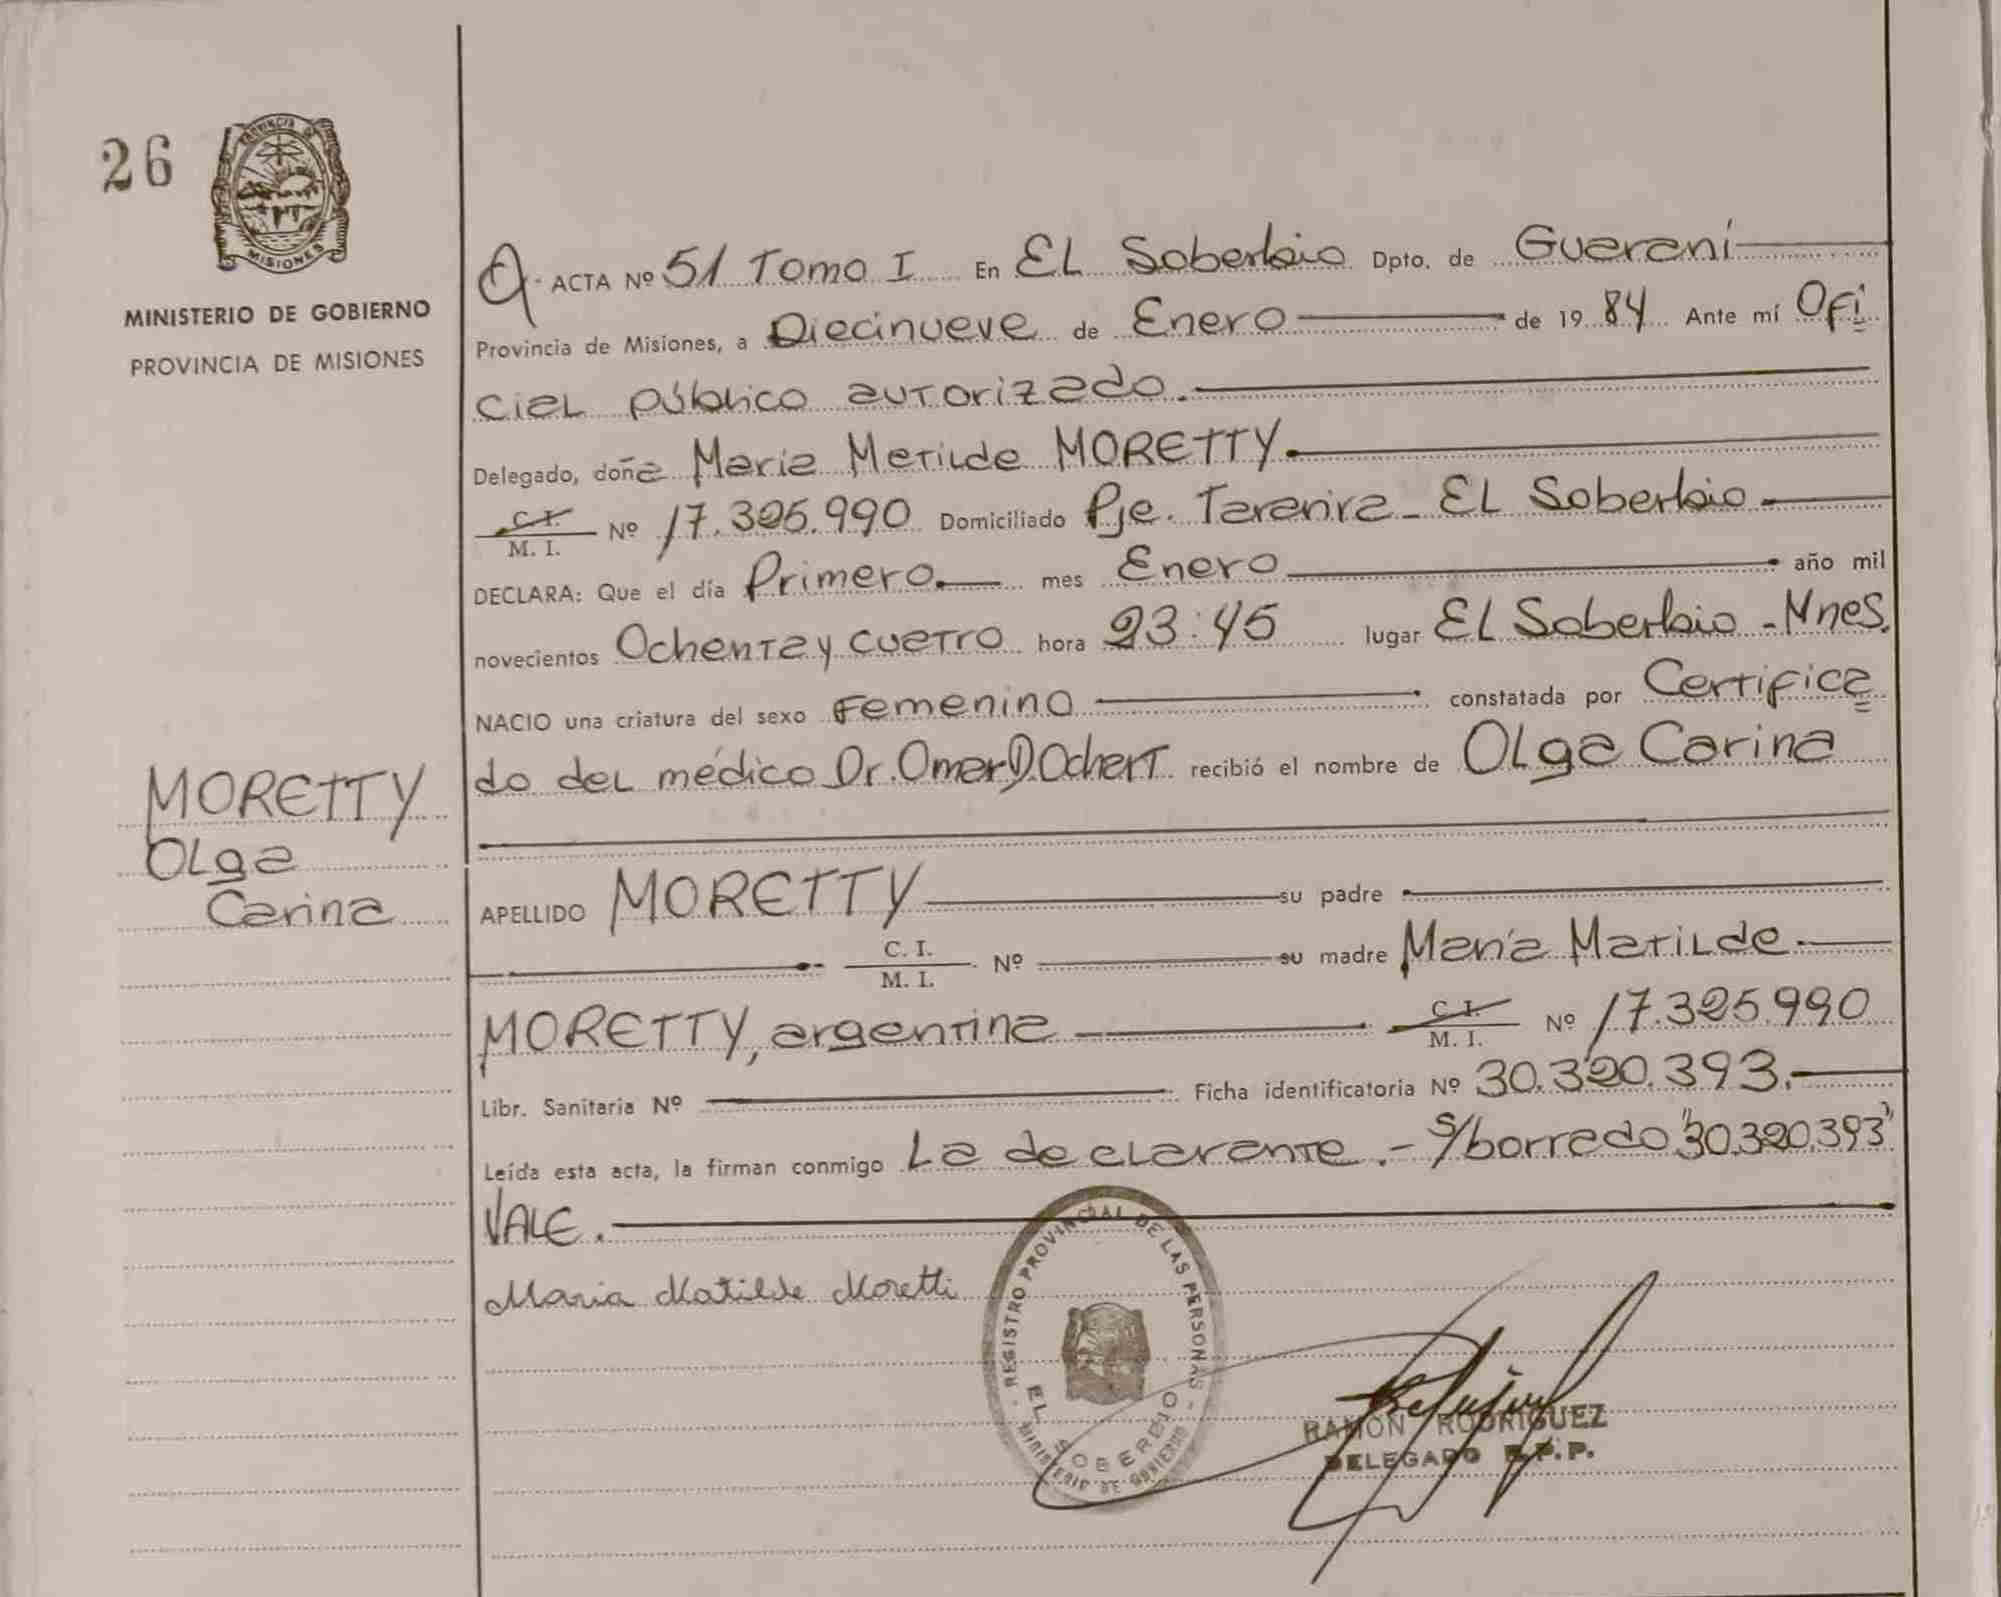 26
PROVINCIA DE
MISIONES
MINISTERIO DE GOBIERNO
PROVINCIA DE MISIONES
MORETTY
Olga
Carina
ACTA Nº 51 Tomo I En El Soberbio Dpto. de Guaraní
Provincia de Misiones, a Diecinueve de Enero de 1984 Ante mí Ofi
cial público autorizado.
Delegado, doña Maria Matilde MORETTY.
C. I.
M. I. Nº 17.325.990 Domiciliado Pje. Tararira - El Soberbio -
DECLARA: Que el día Primero. mes Enero año mil
novecientos Ochenta y cuatro hora 23:45 lugar El Soberbio - Mnes.
NACIO una criatura del sexo Femenino constatada por Certifica
do del médico Dr. Omar D. Ochert recibió el nombre de Olga Carina
APELLIDO MORETTY su padre
C. I.
M. I. Nº su madre María Matilde
MORETTY, argentina C. I.
M. I. Nº 17.325.990
Libr. Sanitaria Nº Ficha identificatoria Nº 30.320.393.
Leída esta acta, la firman conmigo La declarante. - s/borrado "30.320.393"
VALE.
Maria Matilde Moretti
REGISTRO PROVINCIAL DE LAS PERSONAS
EL SOBERBIO
MINISTERIO DE GOBIERNO
RAMON RODRIGUEZ
DELEGADO R.P.P.